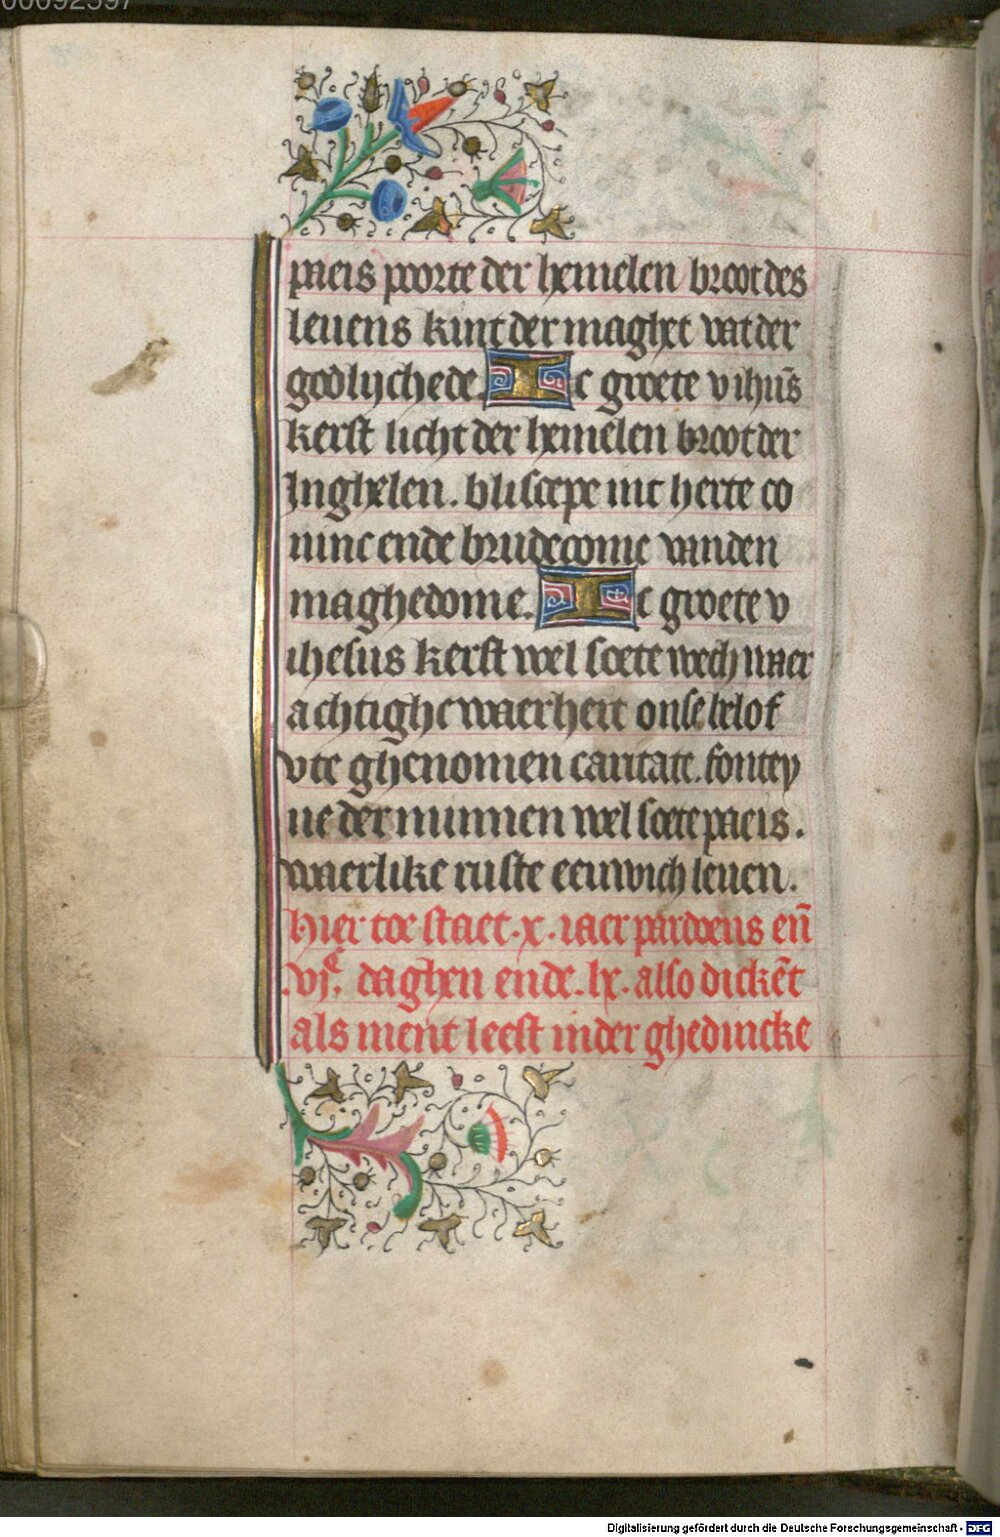 00092397
paeis poorte der hemelen broot des
leuens kint der maghet vat der
godlijchede. Ic groete v ihūs
kerst licht der hemelen broot der
Inghelen. bliscepe int herte co
ninc ende brudecome vanden
maghedome. Ic groete v
ihesus kerst wel soete wech waer
achtighe waerheit onse belof
vte ghenomen caritate. fontey
ne der minnen wel soete paeis.
waerlike ruste eeuwich leuen.
Hier toe staet .x. iaer pardoens eñ
.vjᶜ. daghen ende .lx. also dickēt
als ment leest inder ghedincke
Digitalisierung gefördert durch die Deutsche Forschungsgemeinschaft - DFG